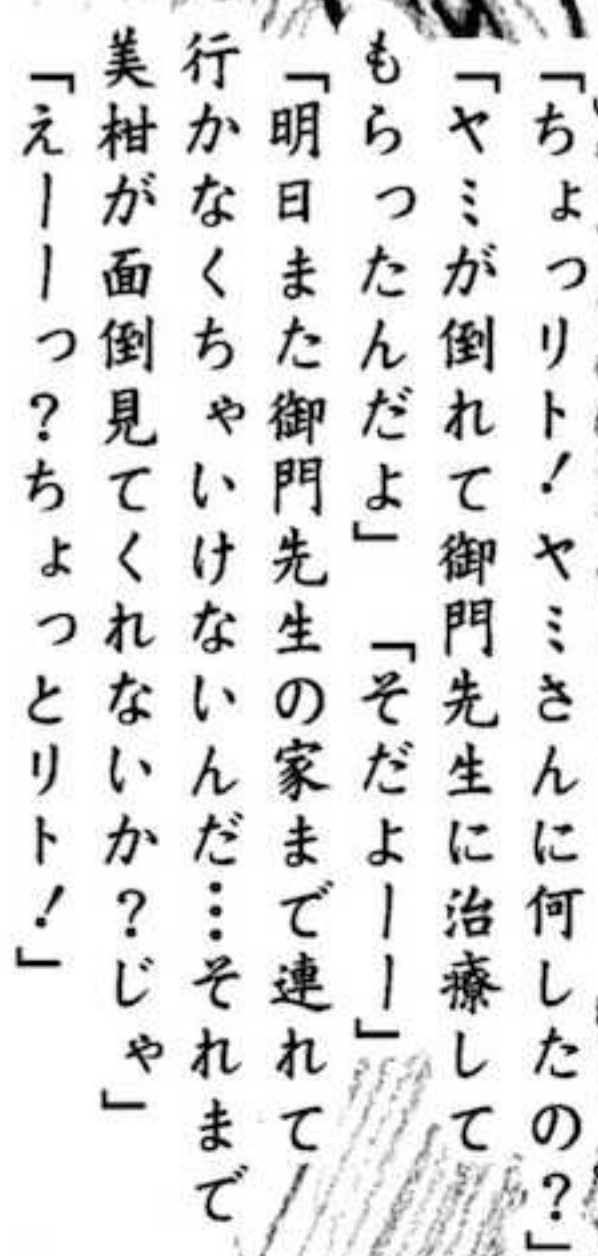 「ちょっリト！ヤミさんに何したの？」
「ヤミが倒れて御門先生に治療して
もらったんだよ」「そだよーー」
「明日また御門先生の家まで連れて
行かなくちゃいけないんだ…それまで
美柑が面倒見てくれないか？じゃ」
「えーーっ？ちょっとリト！」